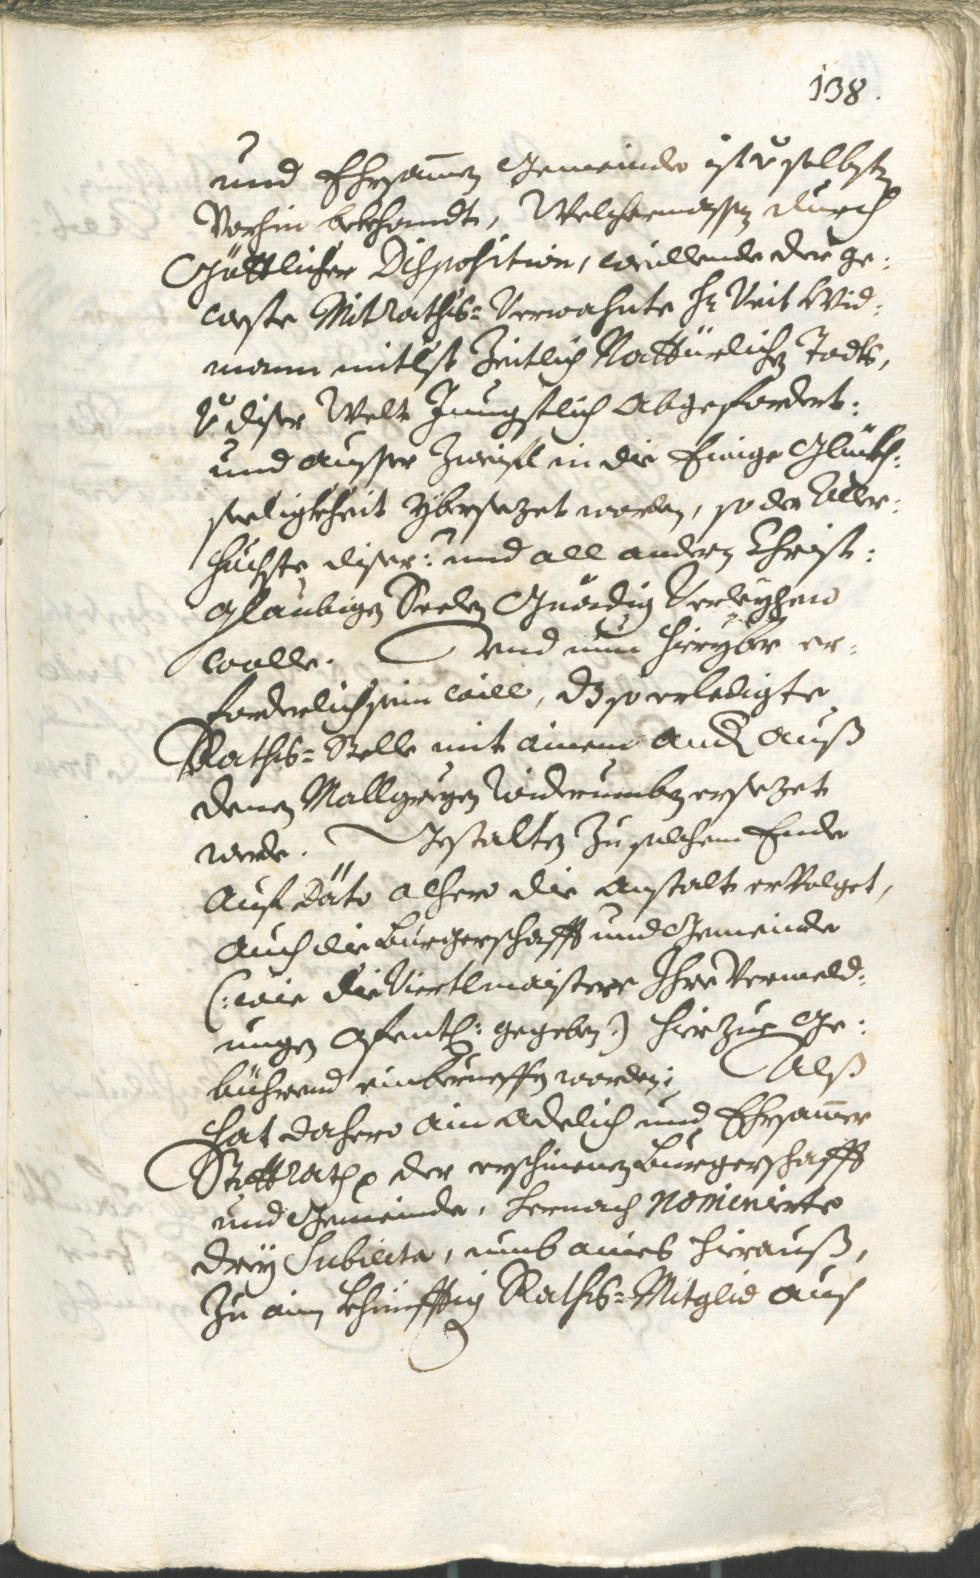 138.
und Ehrsamen Gemeinde ist selbsten
Vorhin bekhandt, Welchermassen durch
Göttlicher Disposition, weillende der ge:
weste Mitraths= Verwohnte Hr Veit Wid:
mann mitlst Zeitlich Nattürlichen Todts,
diser Welt Jüngstlich Abgefordert:
und ausser Zweifl in die Ewige Glückh:
seeligkheit ybersezet worden, so der Aller:
höchste diser: und all andern Christ:
glaubigen Seelen Gnädig Verleyhen
wolle. Und nun hieryber er:
forderlich sein will, dz so erledigte
Raths= Stelle mit ainem and auß
denen Widerumben ersezet
werde. Gestalten Zu solchem Ende
Auf Dato alhero die Anstalt ervolget,
Auch die Burgerschafft und Gemeinde
(: wie die Viertlmaistere Ihre Vermeld:
ungen gegeben :) hierzue Ge:
bührend einberueffen worden; Alß
hat dahero ain Adelich und Ehrsamer
Stattrath der erschinenen Burgerschafft
und Gemeinde, hernach Nominirte
drey Subiecta, umb aines hierauß,
Zu ainem khünfftig Raths= Mitglid auf